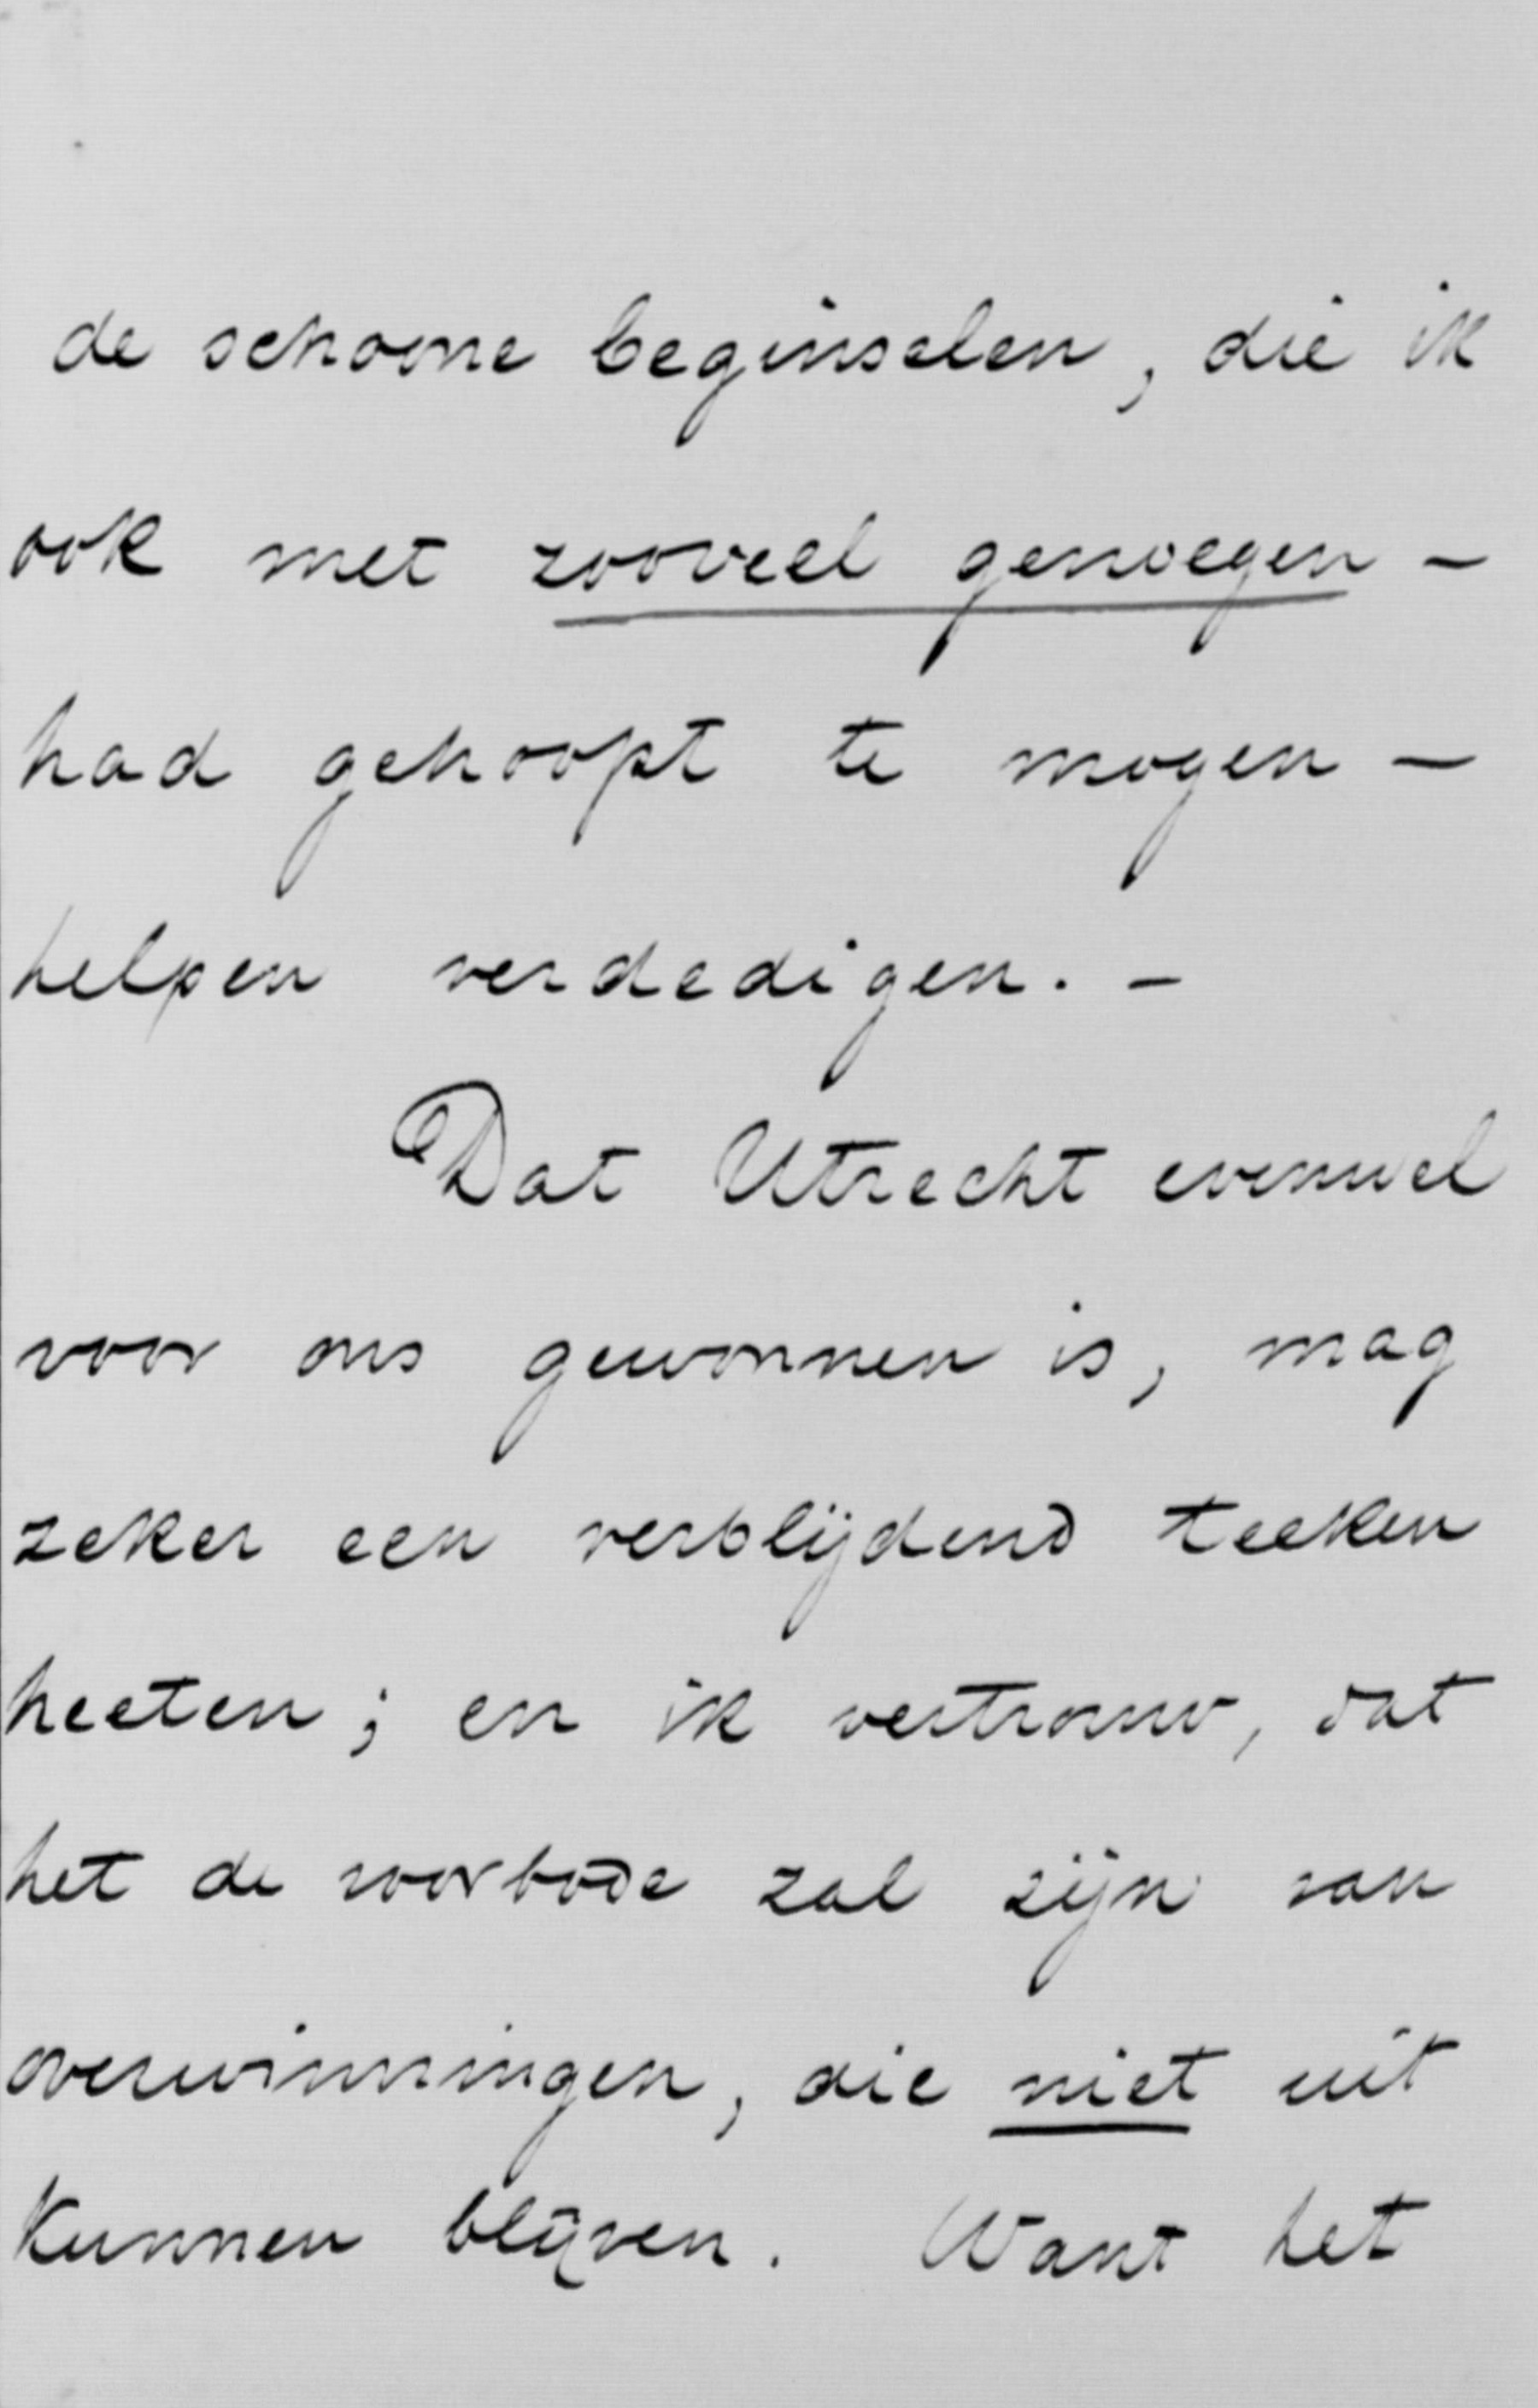 de schoone beginselen, die ik
ook met zooveel genoegen –
had gehoopt te mogen –
helpen verdedigen. –
Dat Utrecht evenwel
voor ons gewonnen is, mag
zeker een verblijdend teeken
heeten; en ik vertrouw, dat
het de voorbode zal zijn van
overwinningen, die niet uit
kunnen blijven. Want het